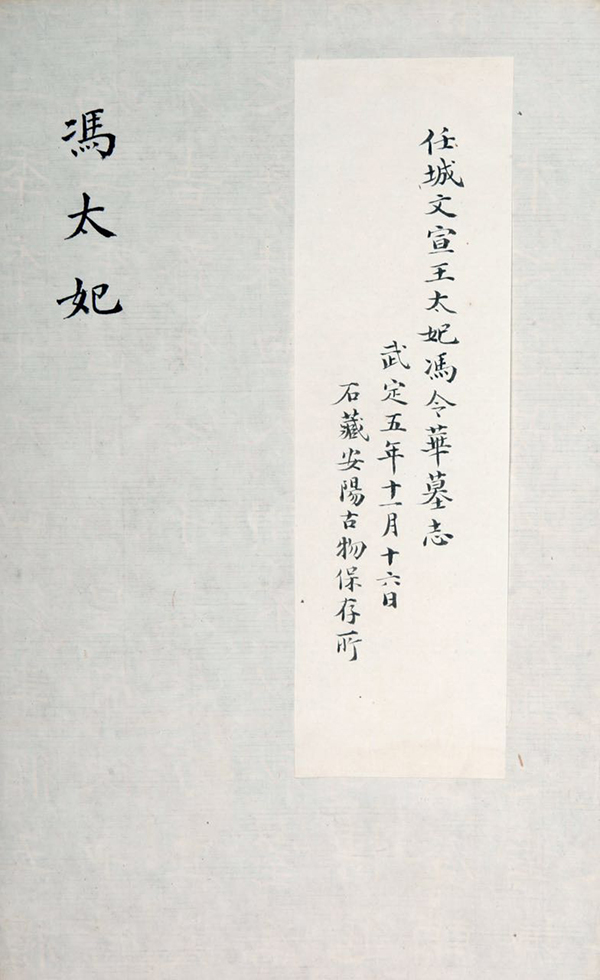 任城文宣王太妃馮令華墓志
武定五年十一月十六日
石藏安陽古物保存所
馮太妃